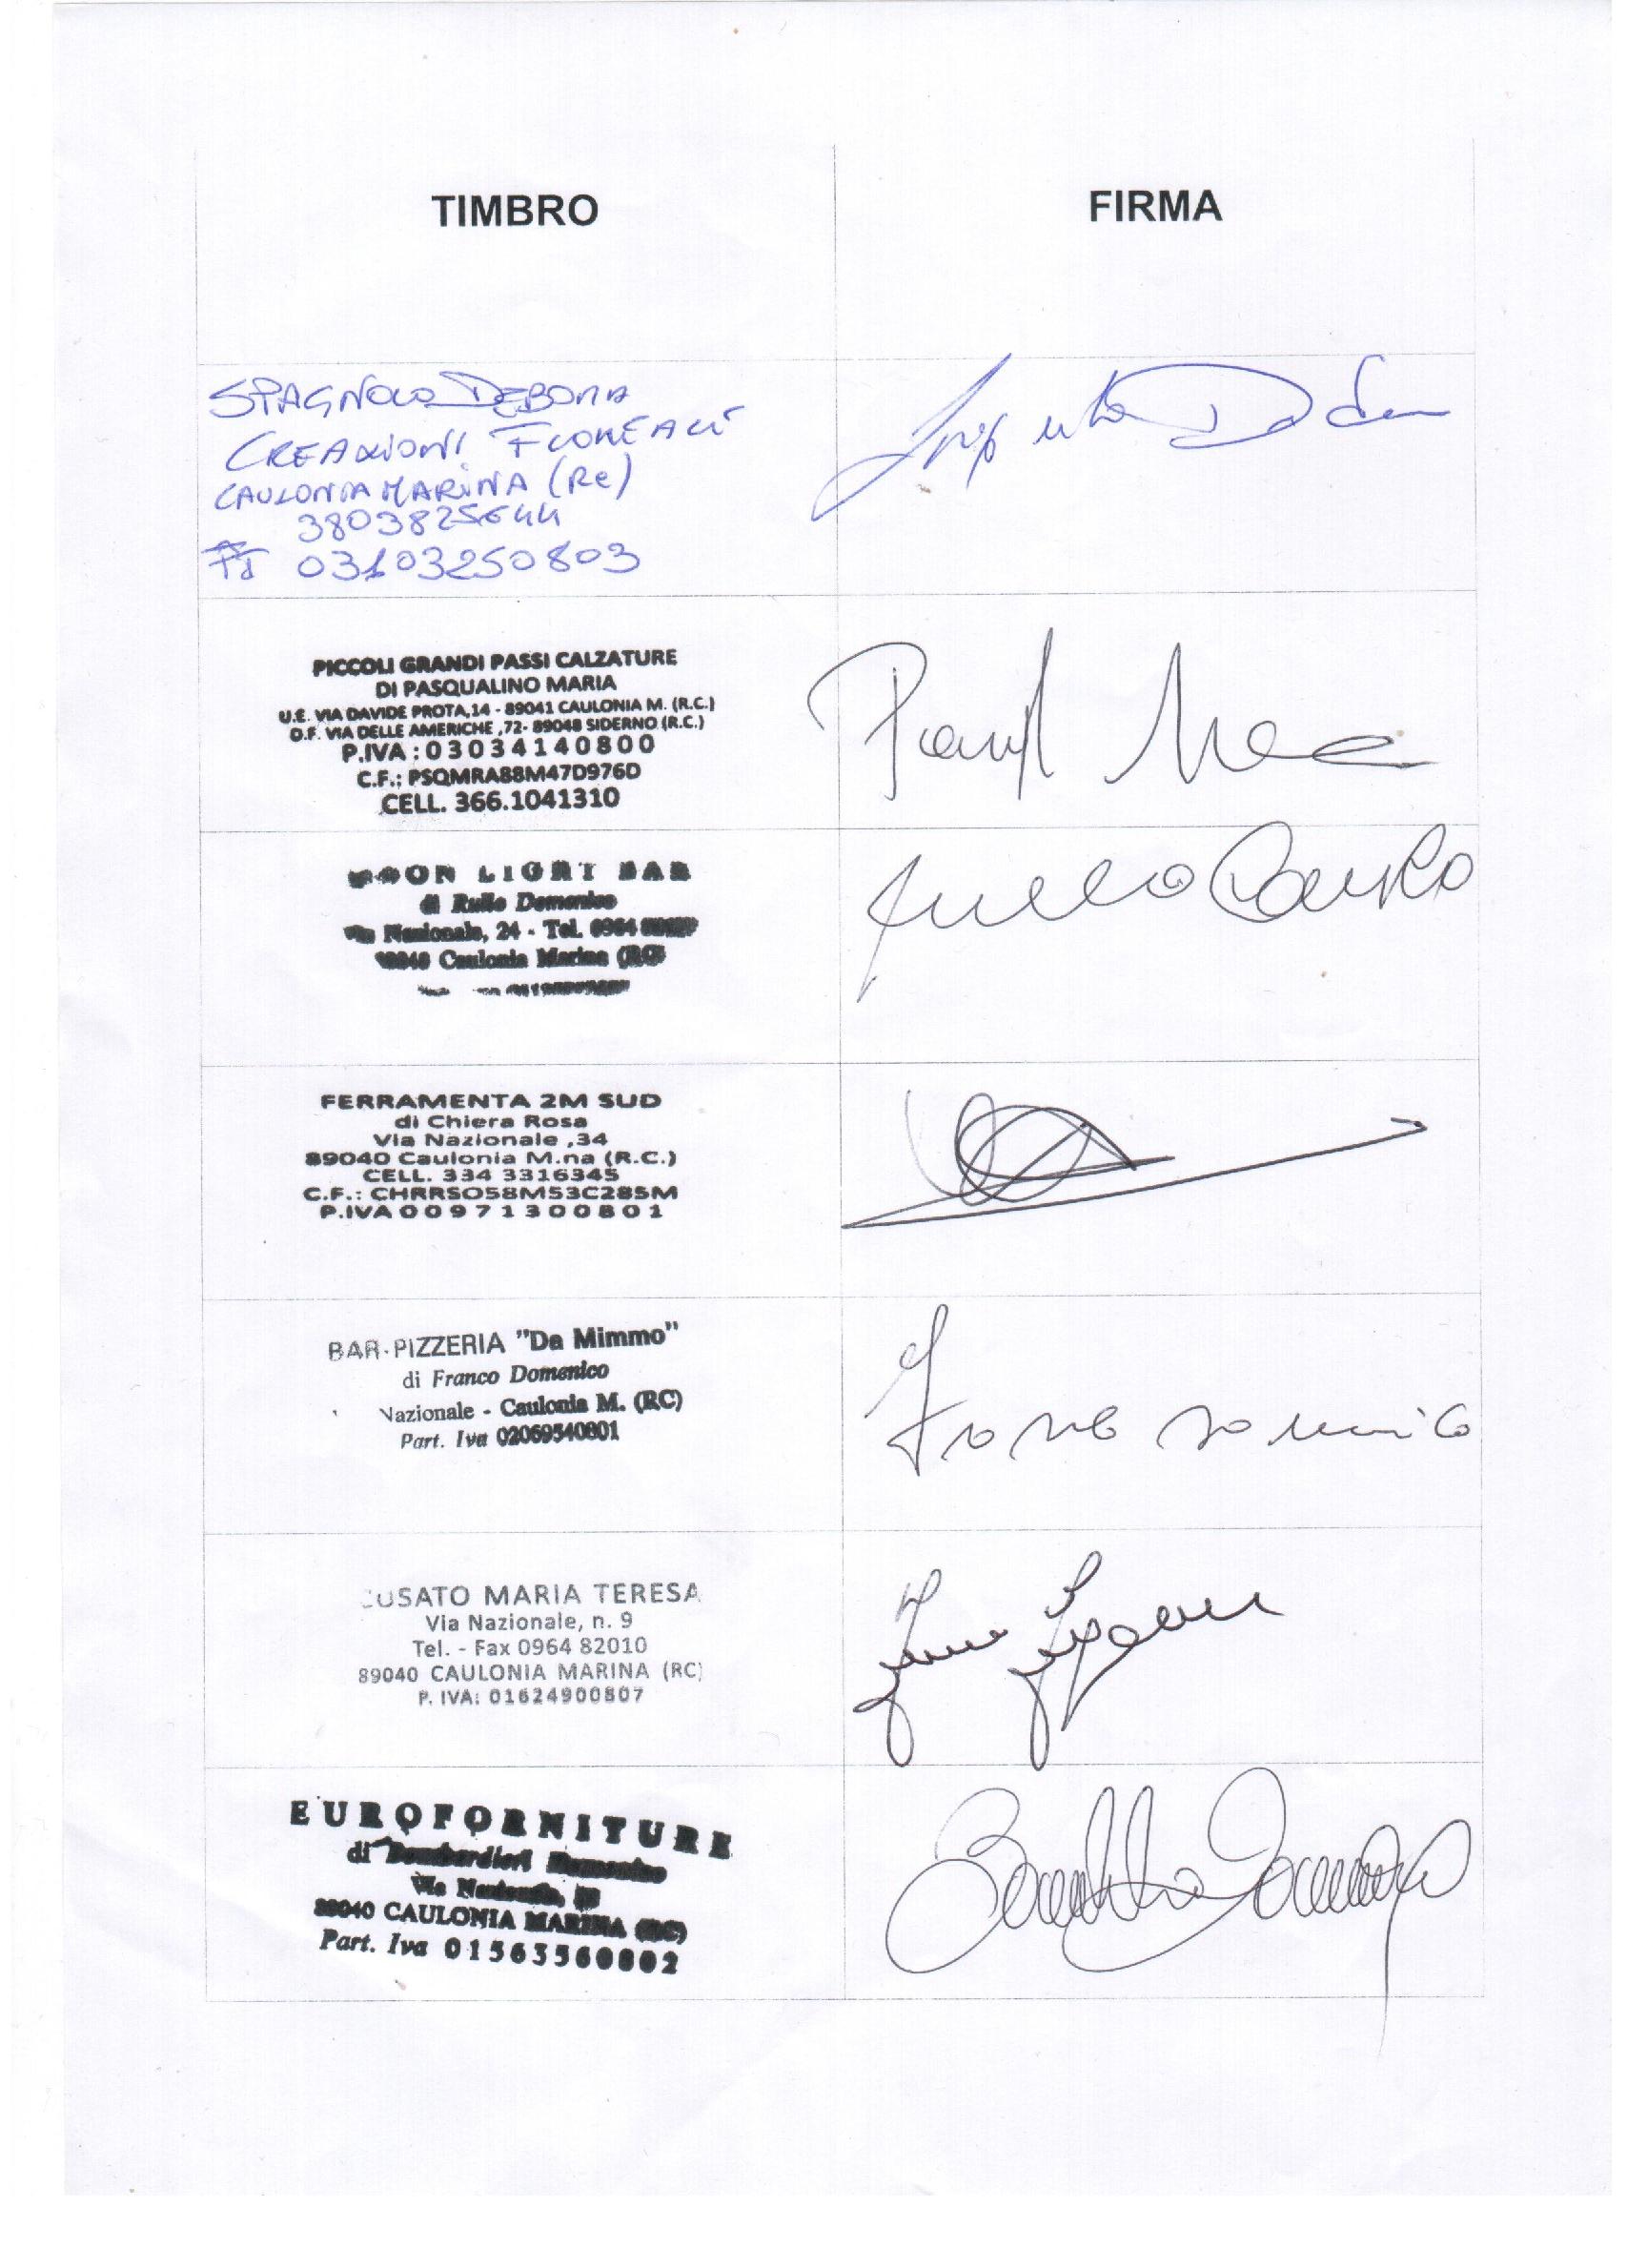 TIMBRO
FIRMA
SPAGNOLO DEBORA
CREAZIONI FLOREALI
CAULONIA MARINA (RC)
3803825644
PI 03103250803
PICCOLI GRANDI PASSI CALZATURE
DI PASQUALINO MARIA
U.E. VIA DAVIDE PROTA,14 - 89041 CAULONIA M. (R.C.)
D.F. VIA DELLE AMERICHE ,72- 89048 SIDERNO (R.C.)
P.IVA : 03034140800
C.F.: PSQMRA88M47D976D
CELL. 366.1041310
MOON LIGHT BAR
di Rullo Domenico
Via Nazionale, 24 - Tel. 0964
Caulonia Marina (RC)
Rullo Domenico
FERRAMENTA 2M SUD
di Chiera Rosa
Via Nazionale ,34
89040 Caulonia M.na (R.C.)
CELL. 334 3316345
C.F.: CHRRSO58M53C285M
P.IVA 00971300801
BAR-PIZZERIA "Da Mimmo"
di Franco Domenico
Nazionale - Caulonia M. (RC)
Part. Iva 02069540801
Franco Domenico
CUSATO MARIA TERESA
Via Nazionale, n. 9
Tel. - Fax 0964 82010
89040 CAULONIA MARINA (RC)
P. IVA: 01624900807
EUROFORNITURE
di Bombardieri Domenico
Via Nazionale,
89040 CAULONIA MARINA (RC)
Part. Iva 01563560802